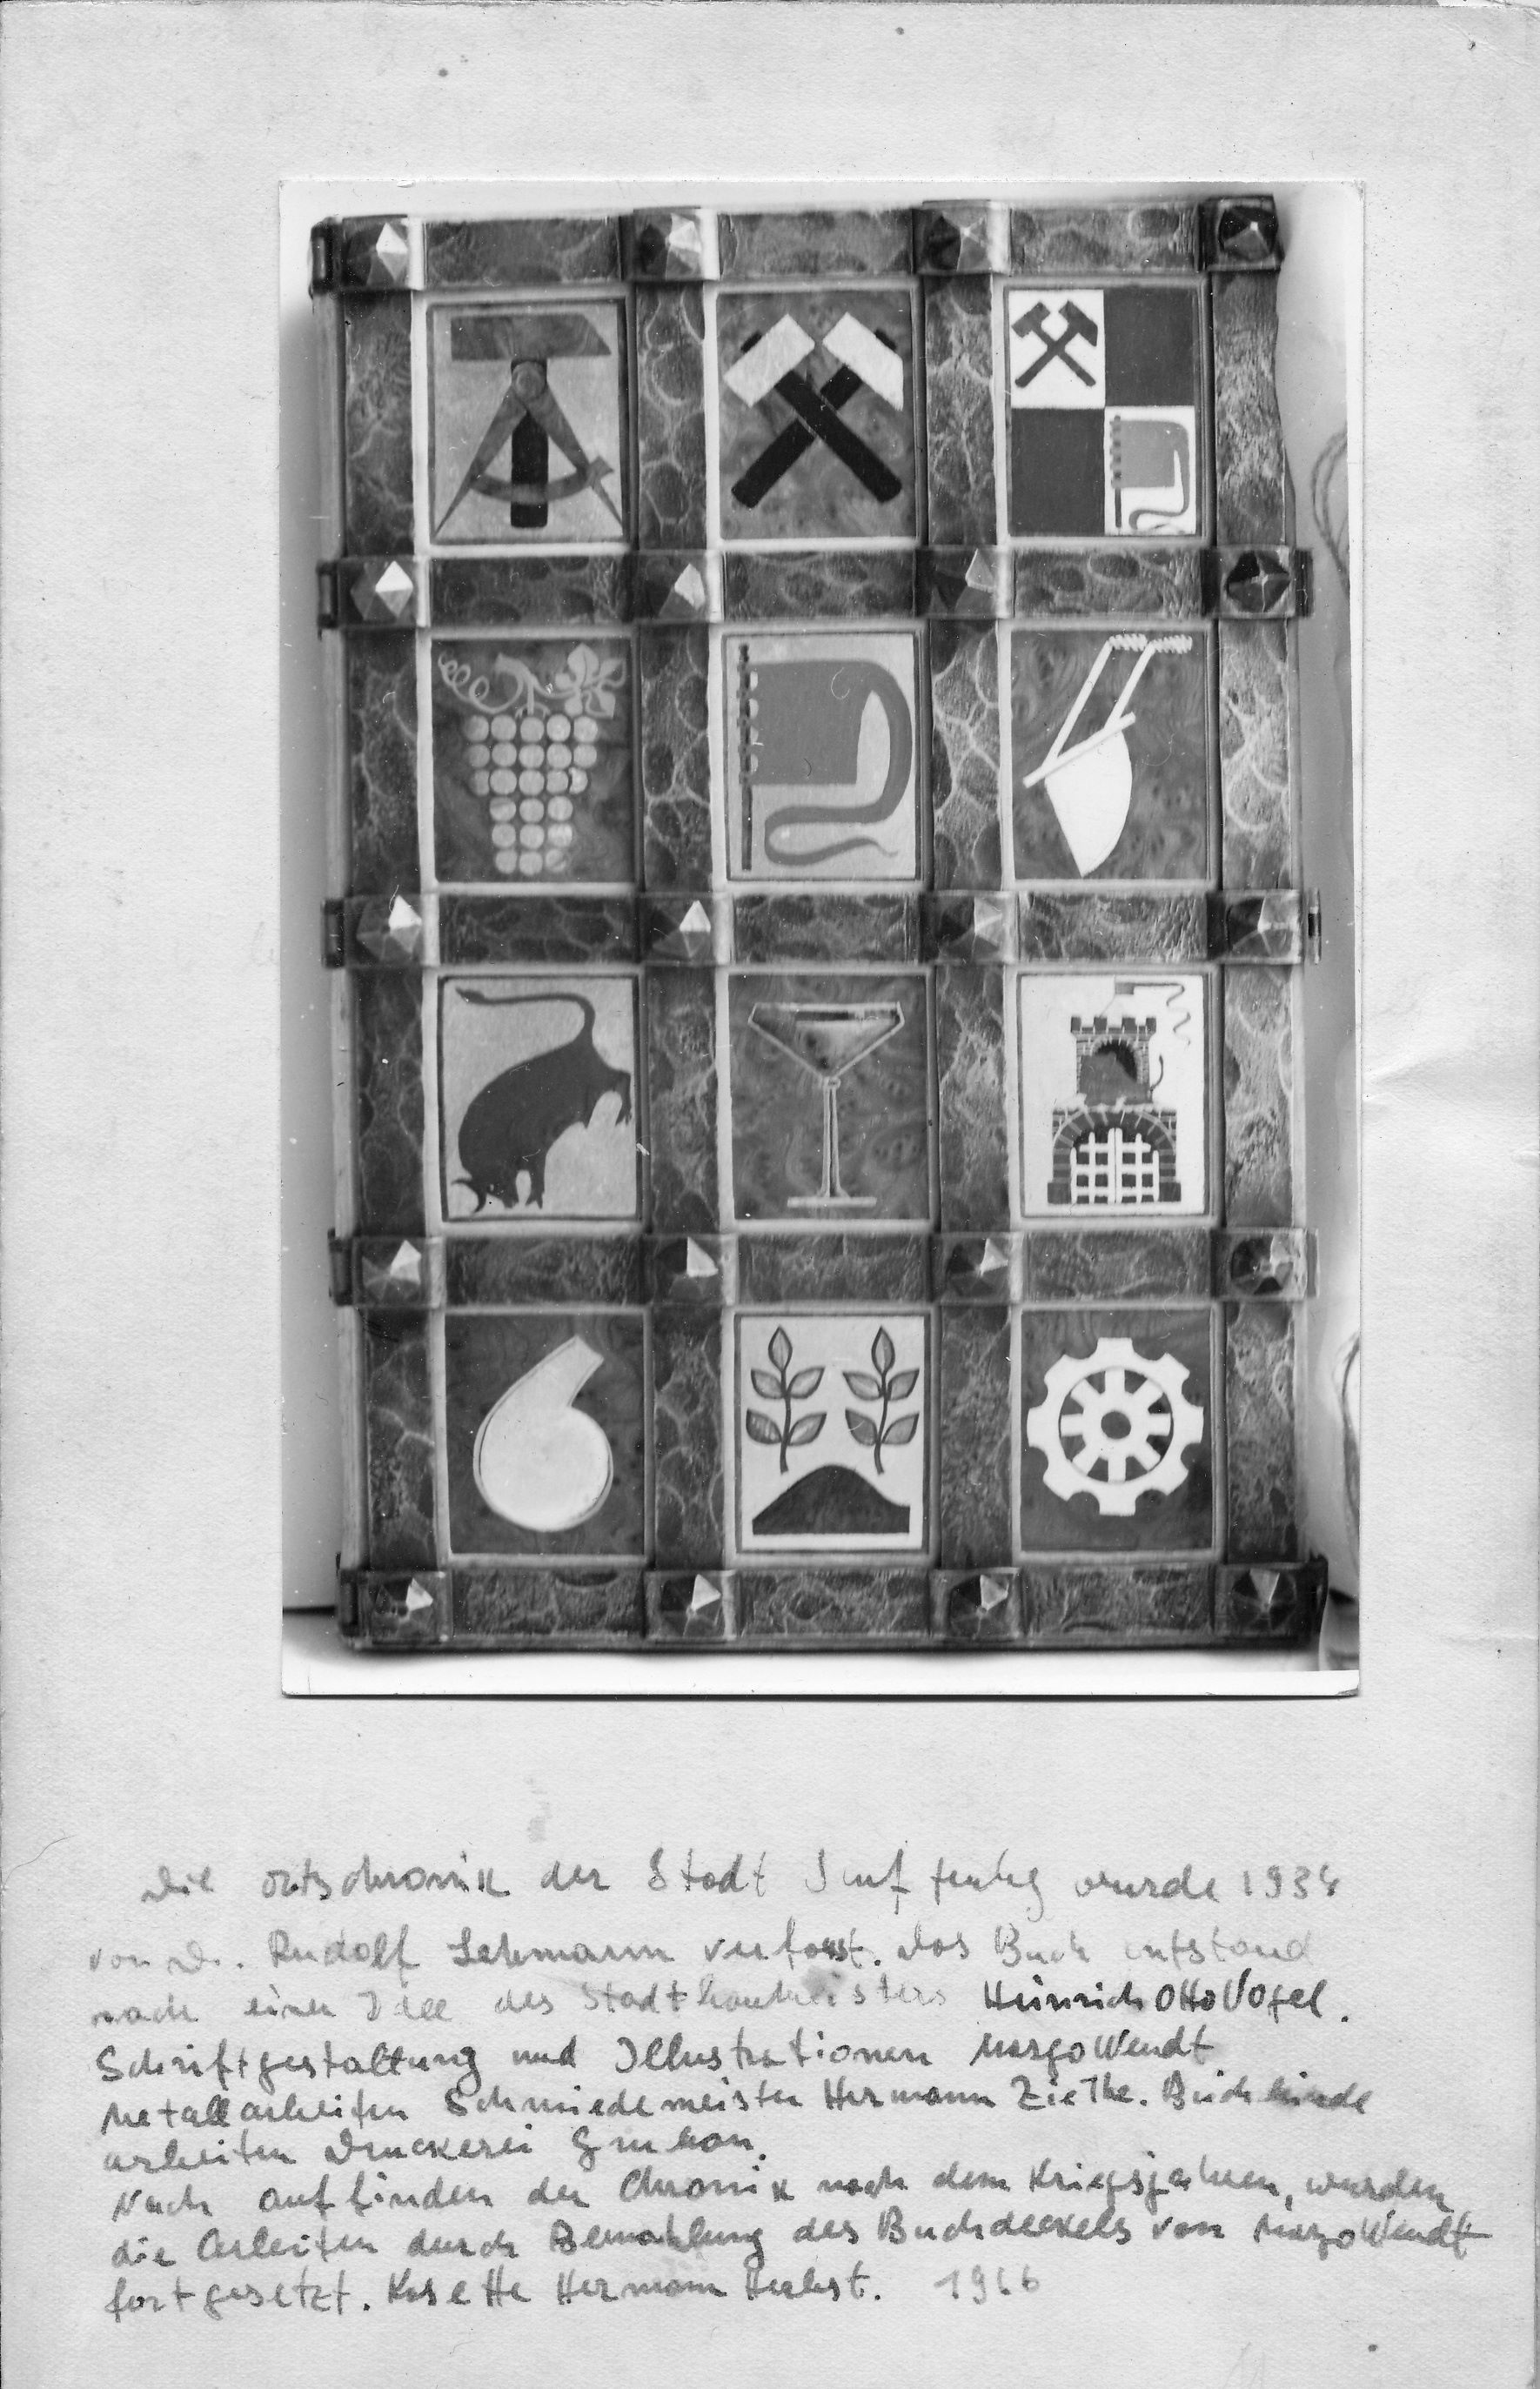 Die Ortschronik der Stadt Senftenbg wurde 1934
von Dr. Rudolf Lehmann verfasst. Das Buch entstand
nach einer Idee des Stadtbaumeisters Heinrich Otto Vogel.
Schriftgestaltung und Illustrationen Margo Wendt
Metallarbeiten Schmiedemeister Hermann Ziethe. Buchbinde
arbeiten Druckerei Grubann.
Nach auffinden der Chronik nach dem Kriegsjahren, wurden
die Arbeiten durch Bemahlung des Buchdeckels von Margo Wendt
fortgesetzt. Kasette Hermann Herbst. 1966